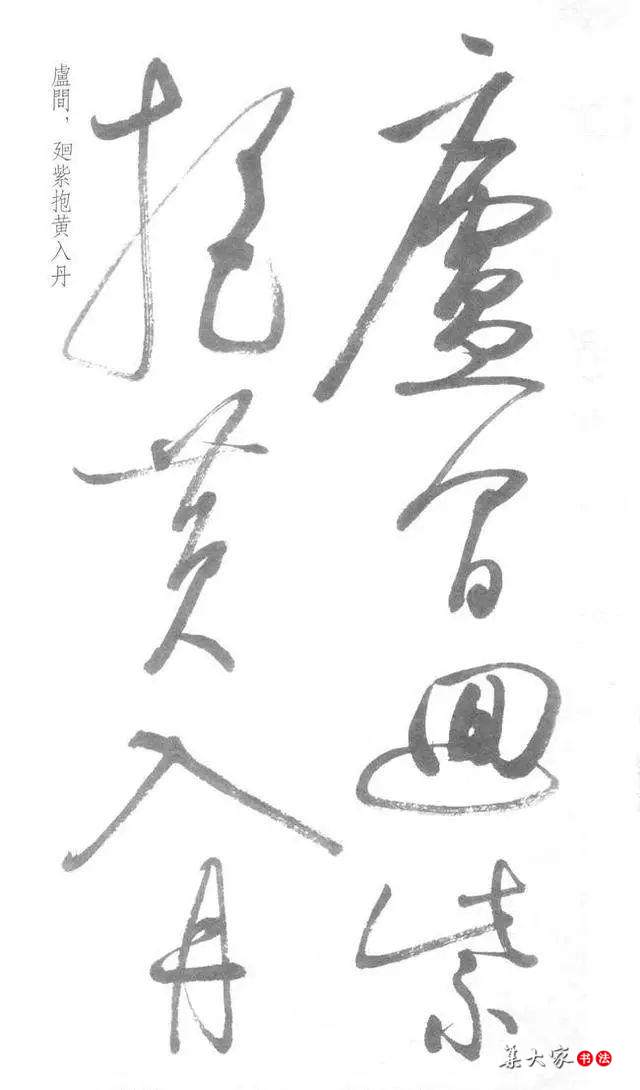 盧間廻紫
抱黄入丹
盧間，廻紫抱黄入丹
集大家书法